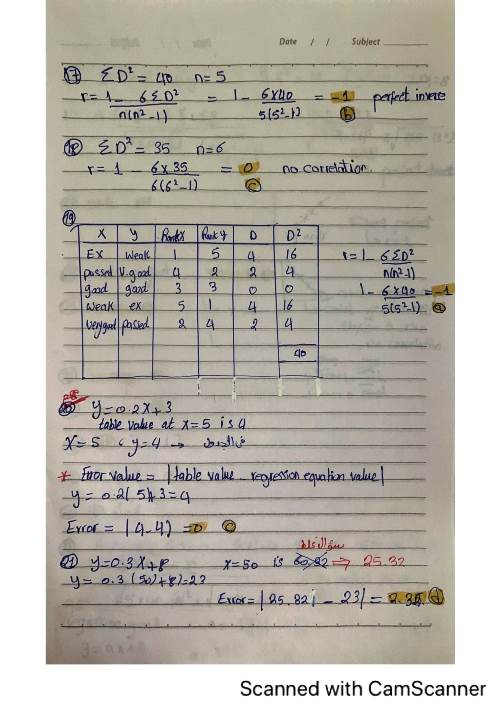 Date / / Subject
17 ΣD² = 40 n=5
r= 1 - 6ΣD² / n(n²-1) = 1 - 6×40 / 5(5²-1) = -1 perfect inverse
b
18 ΣD² = 35 n=6
r= 1 - 6×35 / 6(6²-1) = 0 no correlation.
c
19
X Y Rank X Rank Y D D²
EX weak 1 5 4 16
passed V.good 4 2 2 4
good good 3 3 0 0
weak ex 5 1 4 16
verygood passed 2 4 2 4
40
r= 1 - 6ΣD² / n(n²-1)
1 - 6×40 / 5(5²-1) = -1
a
20 y=0.2X+3
table value at x=5 is 4
X=5 , y=4 → من الجدول
* Error value = |table value - regression equation value|
y = 0.2(5)+3=4
Error = |4-4| =0 c
21 y=0.3X+8 x=50 is ⇒ 25.32
y= 0.3(50)+8=23
Error=|25.32| - 23| = 2.32 d
Scanned with CamScanner